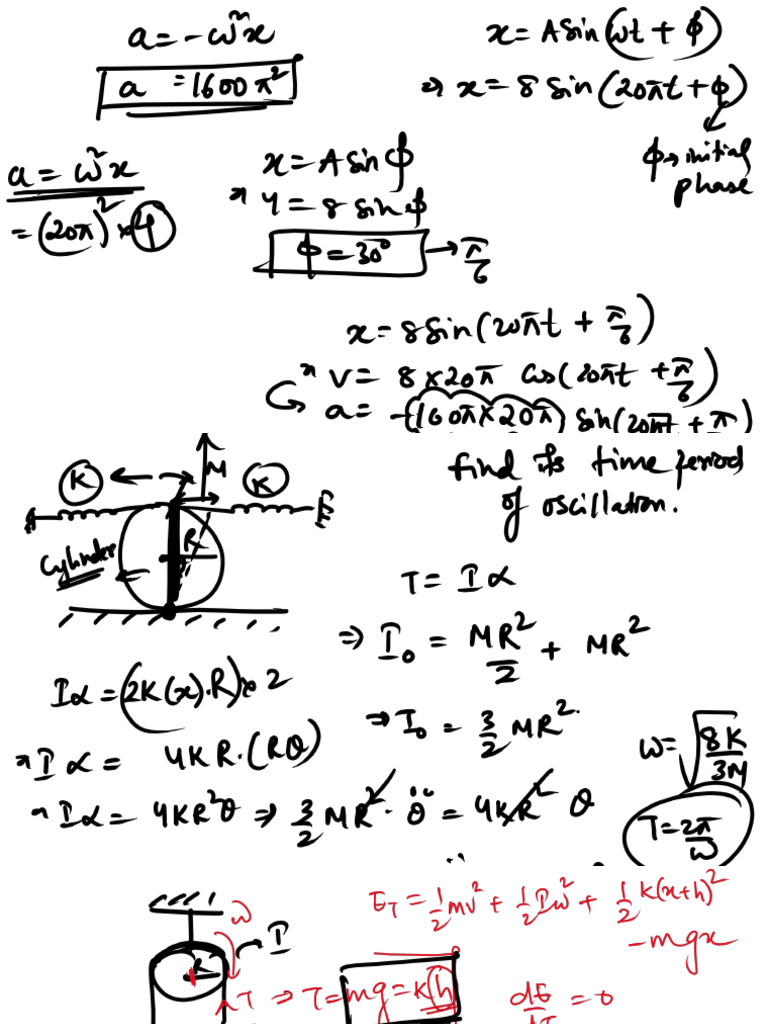 a = -ω²x
a = 1600 π²
x = A sin(ωt + φ)
⇒ x = 8 sin(20πt + φ)
φ → initial
phase
a = ω²x
= (20π)² × 4
x = A sin φ
4 = 8 sin φ
φ = 30° → π/6
x = 8 sin(20πt + π/6)
v = 8×20π cos(20πt + π/6)
a = -(160π×20π) sin(20πt + π
K M K
R
Cylinder
find its time period
of oscillation.
τ = Iα
⇒ I₀ = MR²/2 + MR²
⇒ I₀ = 3/2 MR²
Iα = (2K(x)·R)×2
Iα = 4KR·(Rθ)
Iα = 4KR²θ ⇒ 3/2 MR²·θ̈ = 4KR² θ
ω = √(8K/3M)
T = 2π/ω
ω
I
R
E_T = 1/2 mv² + 1/2 Iω² + 1/2 k(x+h)²
- mgx
T ⇒ T = mg = k(h)
dE/dT = 0